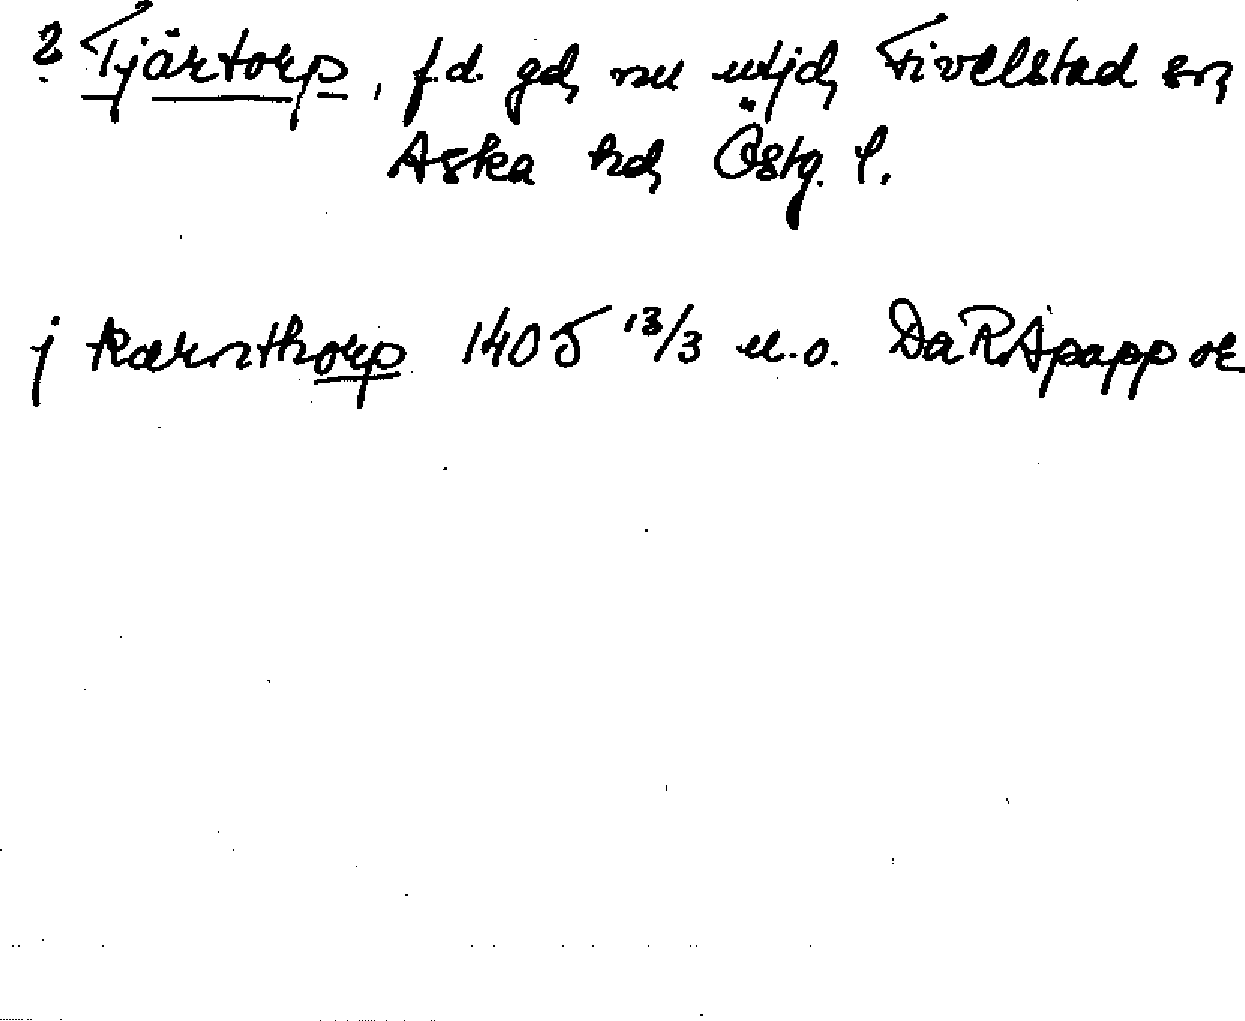 ? Tjärtorp, f.d. gd, nu utjd, Fivelstad sn,
Aska hd, Östg. l.
j kærnthorp 1405 13/3 u.o. DaRApapp or